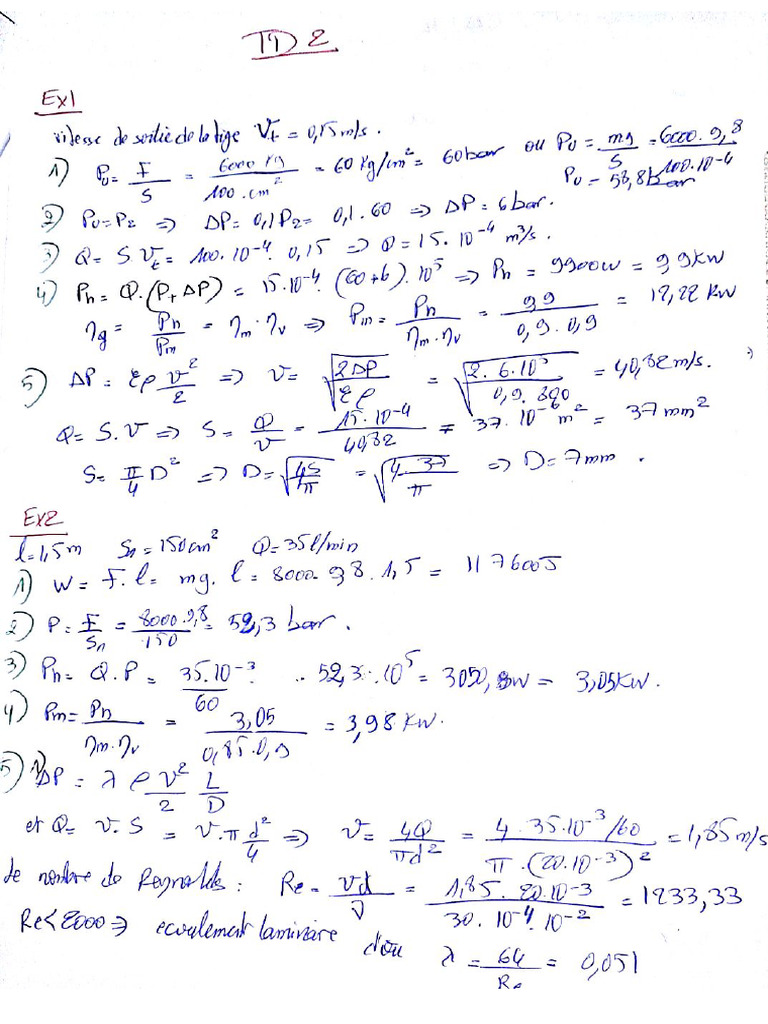 TD 2
Ex1
vitesse de sortie de la tige Vt = 0,15 m/s.
1) Pu = F/S = 6000 kg / 100 . cm² = 60 kg/cm² = 60 bar ou Pu = mg/S = 6000 . 9,8 / 100.10⁻⁴
Pu = 58,8 bar
2) Pu = P2 => ΔP = 0,1 P2 = 0,1 . 60 => ΔP = 6 bar.
3) Q = S.Vt = 100.10⁻⁴ . 0,15 => Q = 15.10⁻⁴ m³/s.
4) Ph = Q.(P+ΔP) = 15.10⁻⁴.(60+6).10⁵ => Ph = 9900w = 9,9 kW
ηg = Ph/Pm = ηm.ηv => Pm = Ph/ηm.ηv = 9,9/0,9.0,9 = 12,22 kW
5) ΔP = ξρ v²/2 => v = √(2ΔP/ξρ) = √(2.6.10⁵/0,9.890) = 40,82 m/s.
Q = S.V => S = Q/v = 15.10⁻⁴/40,82 = 37.10⁻⁶ m² = 37 mm²
S = π/4 D² => D = √(4S/π) = √(4.37/π) => D = 7 mm.
Ex2
l = 1,5 m Sn = 150 cm² Q = 35 l/min
1) W = F.l = mg.l = 8000.9,8.1,5 = 117600 J
2) P = F/Sn = 8000.9,8/150 = 52,3 bar.
3) Ph = Q.P = 35.10⁻³/60 . 52,3.10⁵ = 3050,8w = 3,05 kW.
4) Pm = Ph/ηm.ηv = 3,05/0,85.0,9 = 3,98 kW.
5) ΔP = λ ρ v²/2 L/D
et Q = v.S = v.π d²/4 => v = 4Q/πd² = 4.35.10⁻³/60 / π.(20.10⁻³)² = 1,85 m/s
le nombre de Reynolds : Re = vd/ν = 1,85.20.10⁻³/30.10⁻⁴.10⁻² = 1233,33
Re<2000 => ecoulement laminaire d'où λ = 64/Re = 0,051